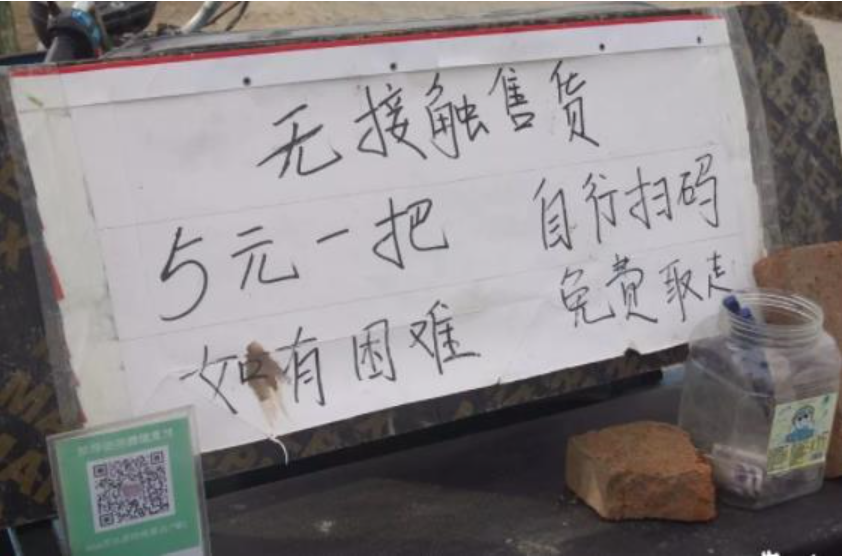 无接触售货
5元一把 自行扫码
如有困难 免费取走